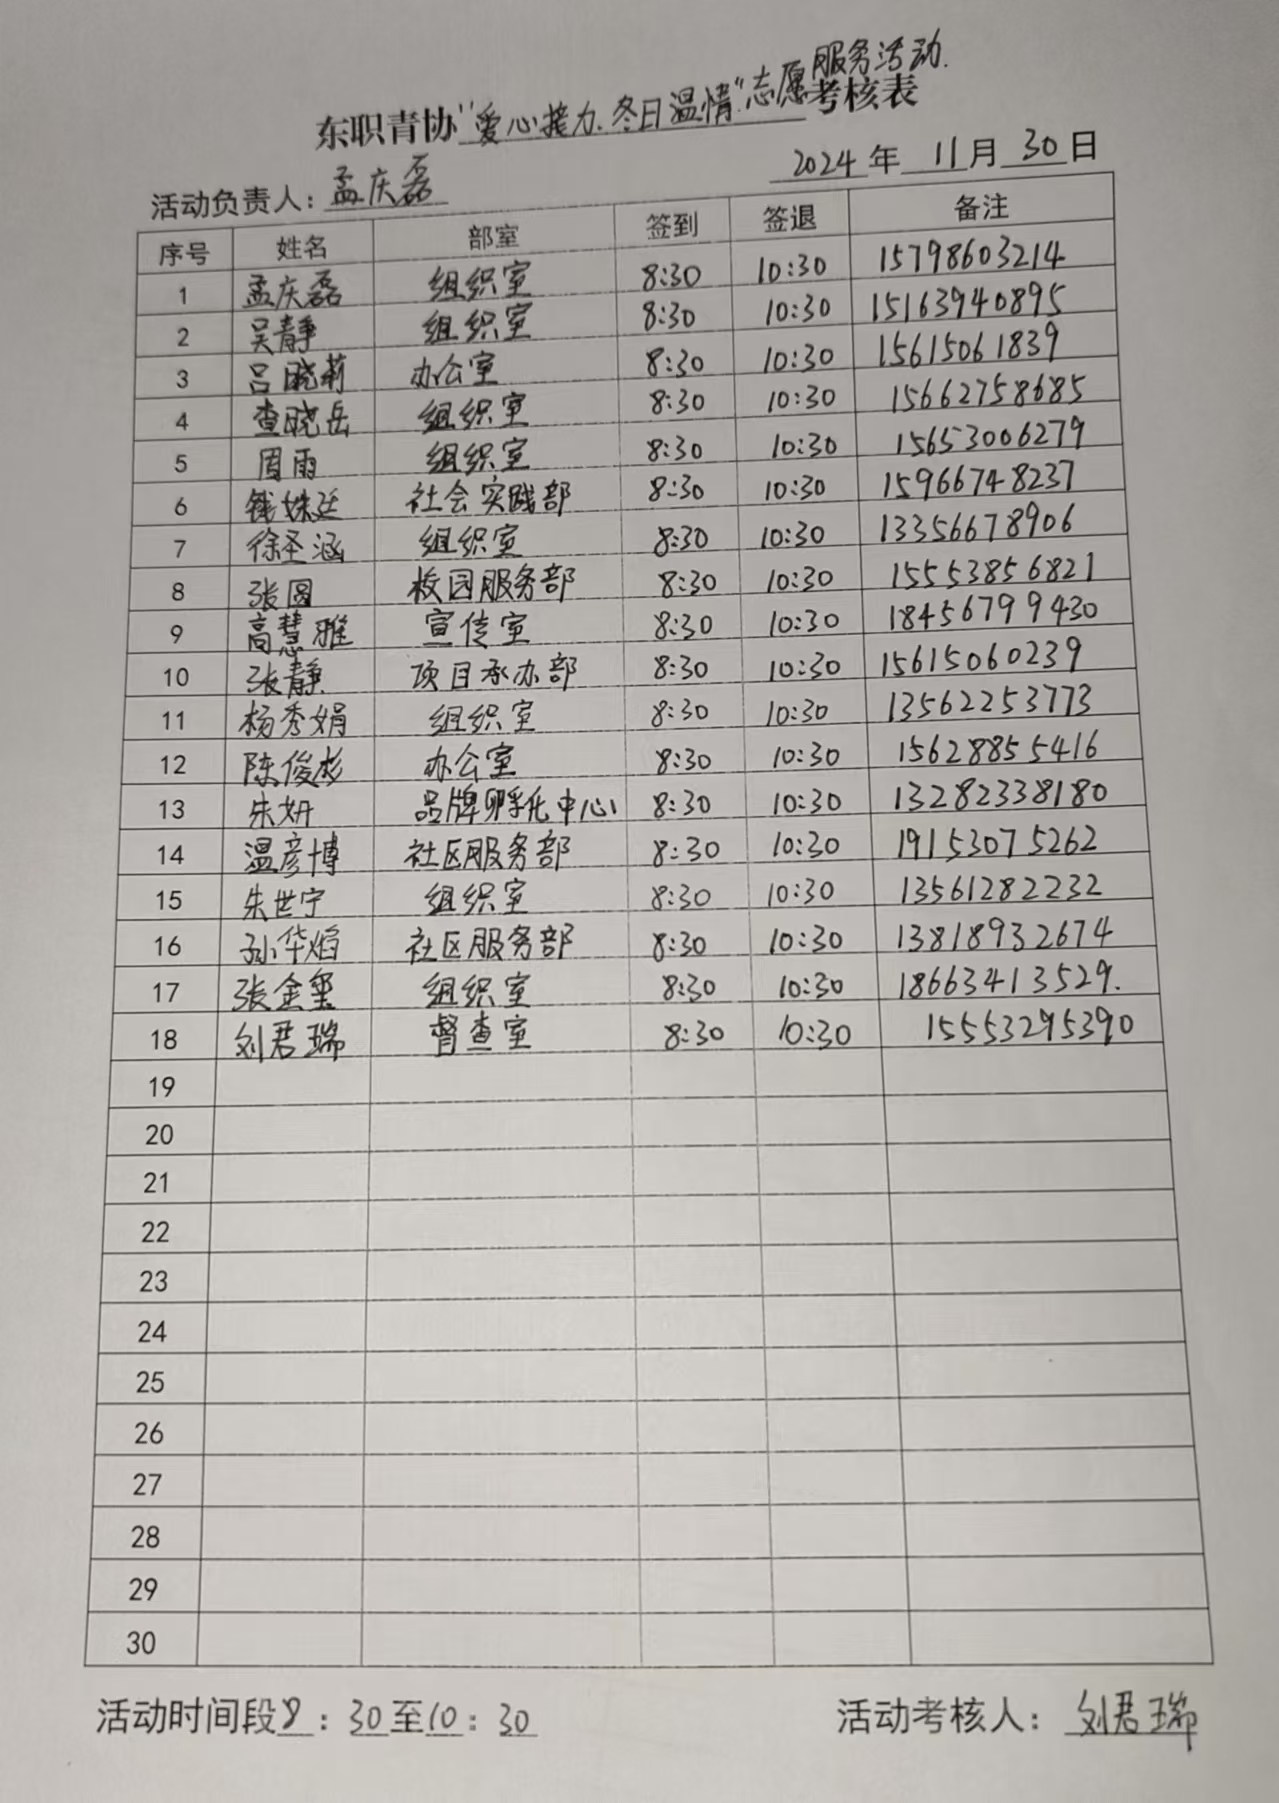 东职青协"爱心接力、冬日温情"志愿服务活动.考核表
活动负责人：孟庆磊 2024年11月30日
序号 姓名 部室 签到 签退 备注
1 孟庆磊 组织室 8:30 10:30 15798603214
2 吴静 组织室 8:30 10:30 15163940895
3 吕晓莉 办公室 8:30 10:30 15615061839
4 查晓岳 组织室 8:30 10:30 15662758685
5 周雨 组织室 8:30 10:30 15653006279
6 钱姝廷 社会实践部 8:30 10:30 15966748237
7 徐圣涵 组织室 8:30 10:30 13356678906
8 张圆 校园服务部 8:30 10:30 15553856821
9 高慧雅 宣传室 8:30 10:30 18456799430
10 张静 项目承办部 8:30 10:30 15615060239
11 杨秀娟 组织室 8:30 10:30 13562253773
12 陈俊彬 办公室 8:30 10:30 15628855416
13 朱妍 品牌孵化中心 8:30 10:30 13282338180
14 温彦博 社区服务部 8:30 10:30 19153075262
15 朱世宁 组织室 8:30 10:30 13561282232
16 孙华焰 社区服务部 8:30 10:30 13818932674
17 张金玺 组织室 8:30 10:30 18663413529.
18 刘君瑞 督查室 8:30 10:30 15553295390
19
20
21
22
23
24
25
26
27
28
29
30
活动时间段8：30至10：30 活动考核人：刘君瑞